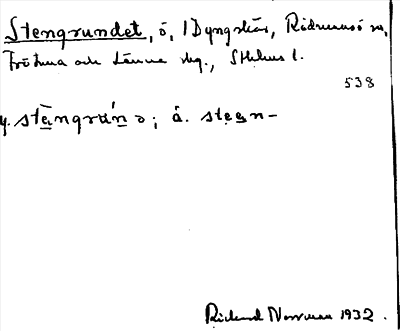 Stengrundet, ö, i Dyngskär, Rådmansö sn,
Frötuna och Länna skg., Sthlms l.
538
y. stängrún ə; á. steən-
Rickard Norrman 1932.